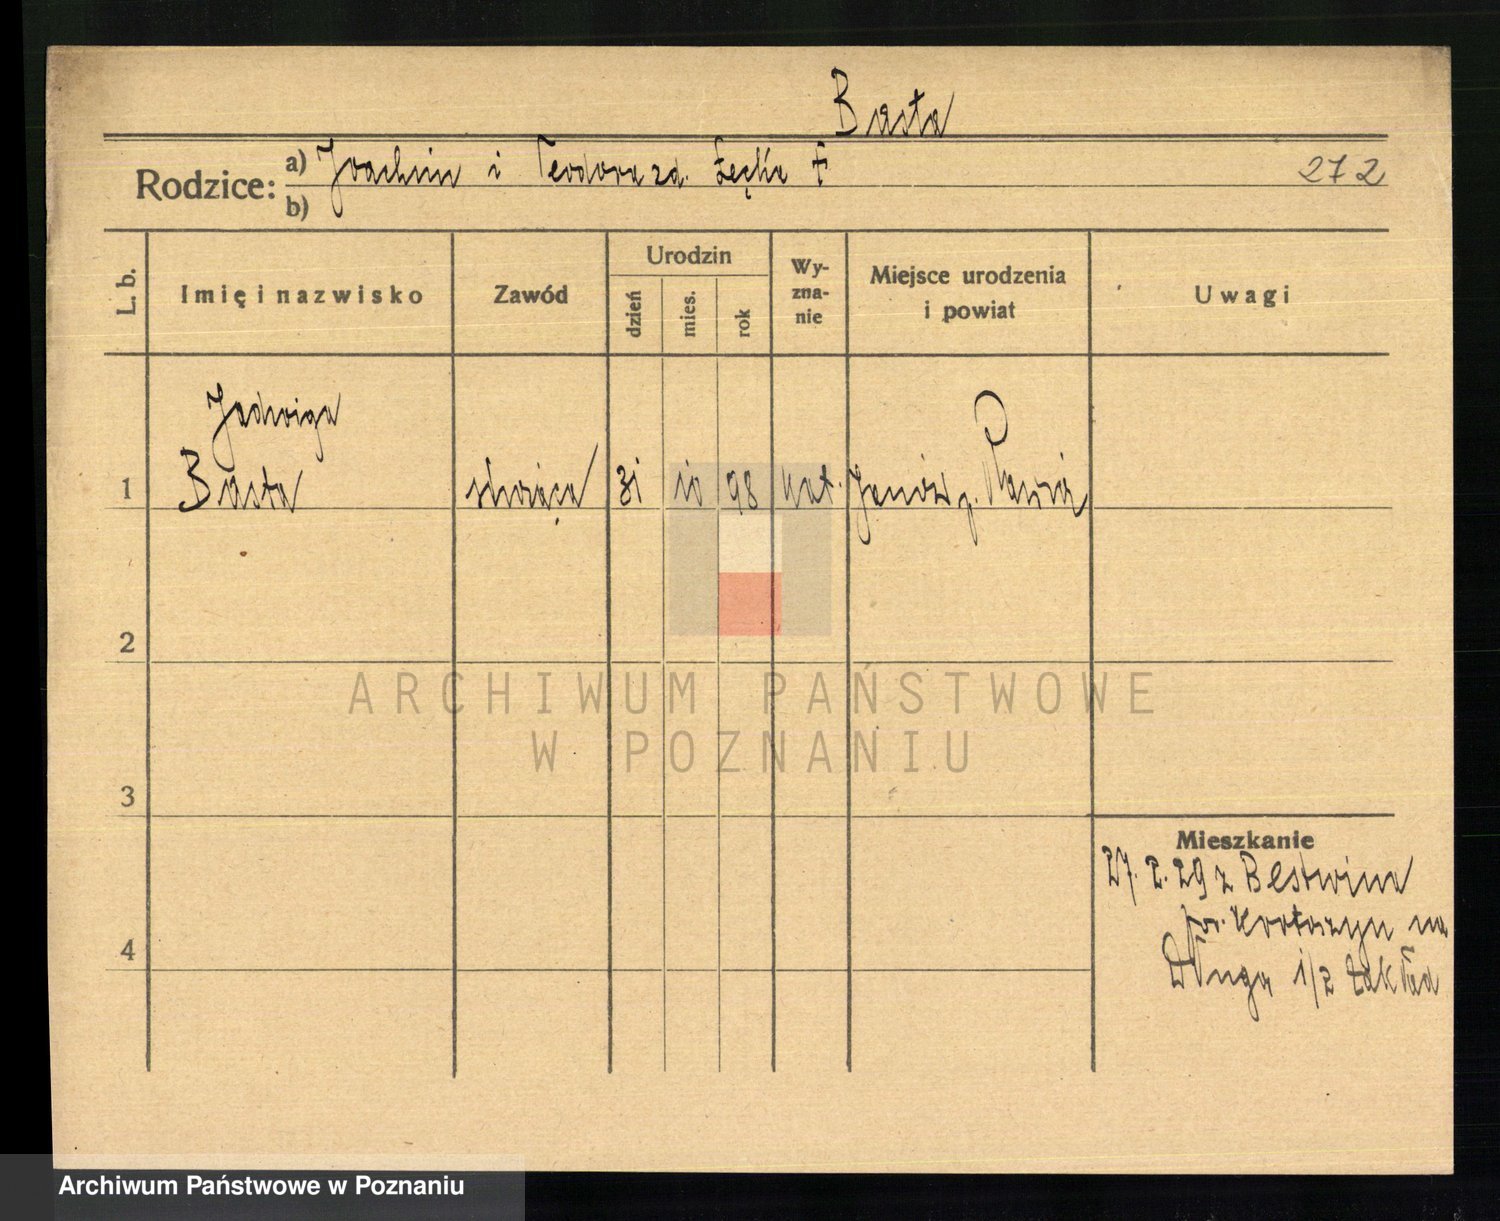 Basta
Rodzice: a) Joachim i Teodora zd. Łęcka †
b)
272
L. b.
Imię i nazwisko
Zawód
Urodzin
dzień
mies.
rok
Wy-
zna-
nie
Miejsce urodzenia
i powiat
Uwagi
Jadwiga
1 Basta służąca 31 10 98 kat. Janów p.
2
ARCHIWUM PAŃSTWOWE
W POZNANIU
3
Mieszkanie
27. 2. 29 z Bestwina
pow. Krotoszyn na
4
Długa 1/2 Zakład
Archiwum Państwowe w Poznaniu